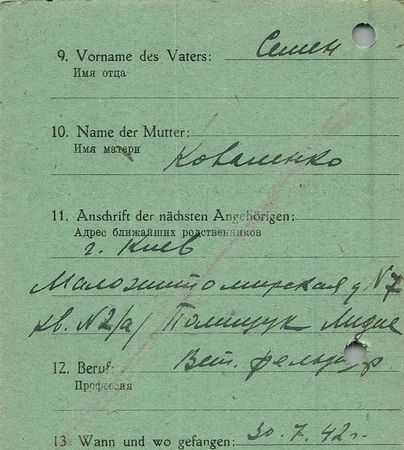 9. Vorname des Vaters: Семен
Имя отца
10. Name der Mutter:
Имя матери Коваленко
11. Anschrift der nächsten Angehörigen:
Адрес ближайших родственников
г. Киев
Маложитомирская д N7
кв. N2/а/ Полищук Лидие
12. Beruf: Вет. фельдшер
Профессия
13 Wann und wo gefangen: 30.7.42г.